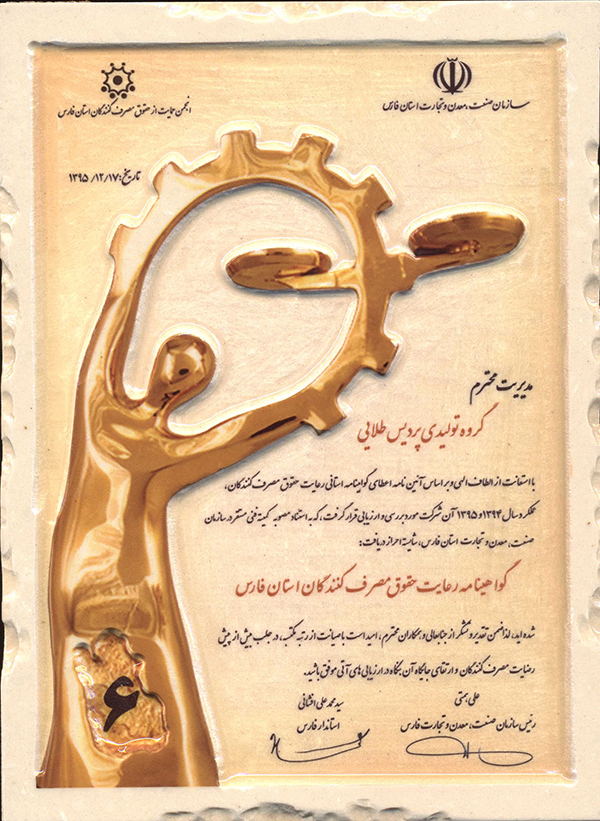 سازمان صنعت، معدن و تجارت استان فارس
انجمن حمایت از حقوق مصرف کنندگان استان فارس
تاریخ: ۱۳۹۵/۱۲/۱۷
مدیریت محترم
گروه تولیدی پردیس طلایی
با استعانت از الطاف الهی و بر اساس آئین نامه اعطای گواهینامه استانی رعایت حقوق مصرف کنندگان،
عملکرد سال ۱۳۹۴ و ۱۳۹۵ آن شرکت مورد بررسی و ارزیابی قرار گرفت، که به استناد مصوبه کمیته فنی مستقر در سازمان
صنعت، معدن و تجارت استان فارس، شایسته احراز دریافت:
گواهینامه رعایت حقوق مصرف کنندگان استان فارس
شده اید، لذا ضمن تقدیر و تشکر از جنابعالی و همکاران محترم، امید است با صیانت از رتبه مکتسبه، در جلب بیش از پیش
رضایت مصرف کنندگان و ارتقای جایگاه آن بنگاه در ارزیابی های آتی موفق باشید.
علی همتی
رئیس سازمان صنعت، معدن و تجارت فارس
سید محمد علی افشانی
استاندار فارس
۶